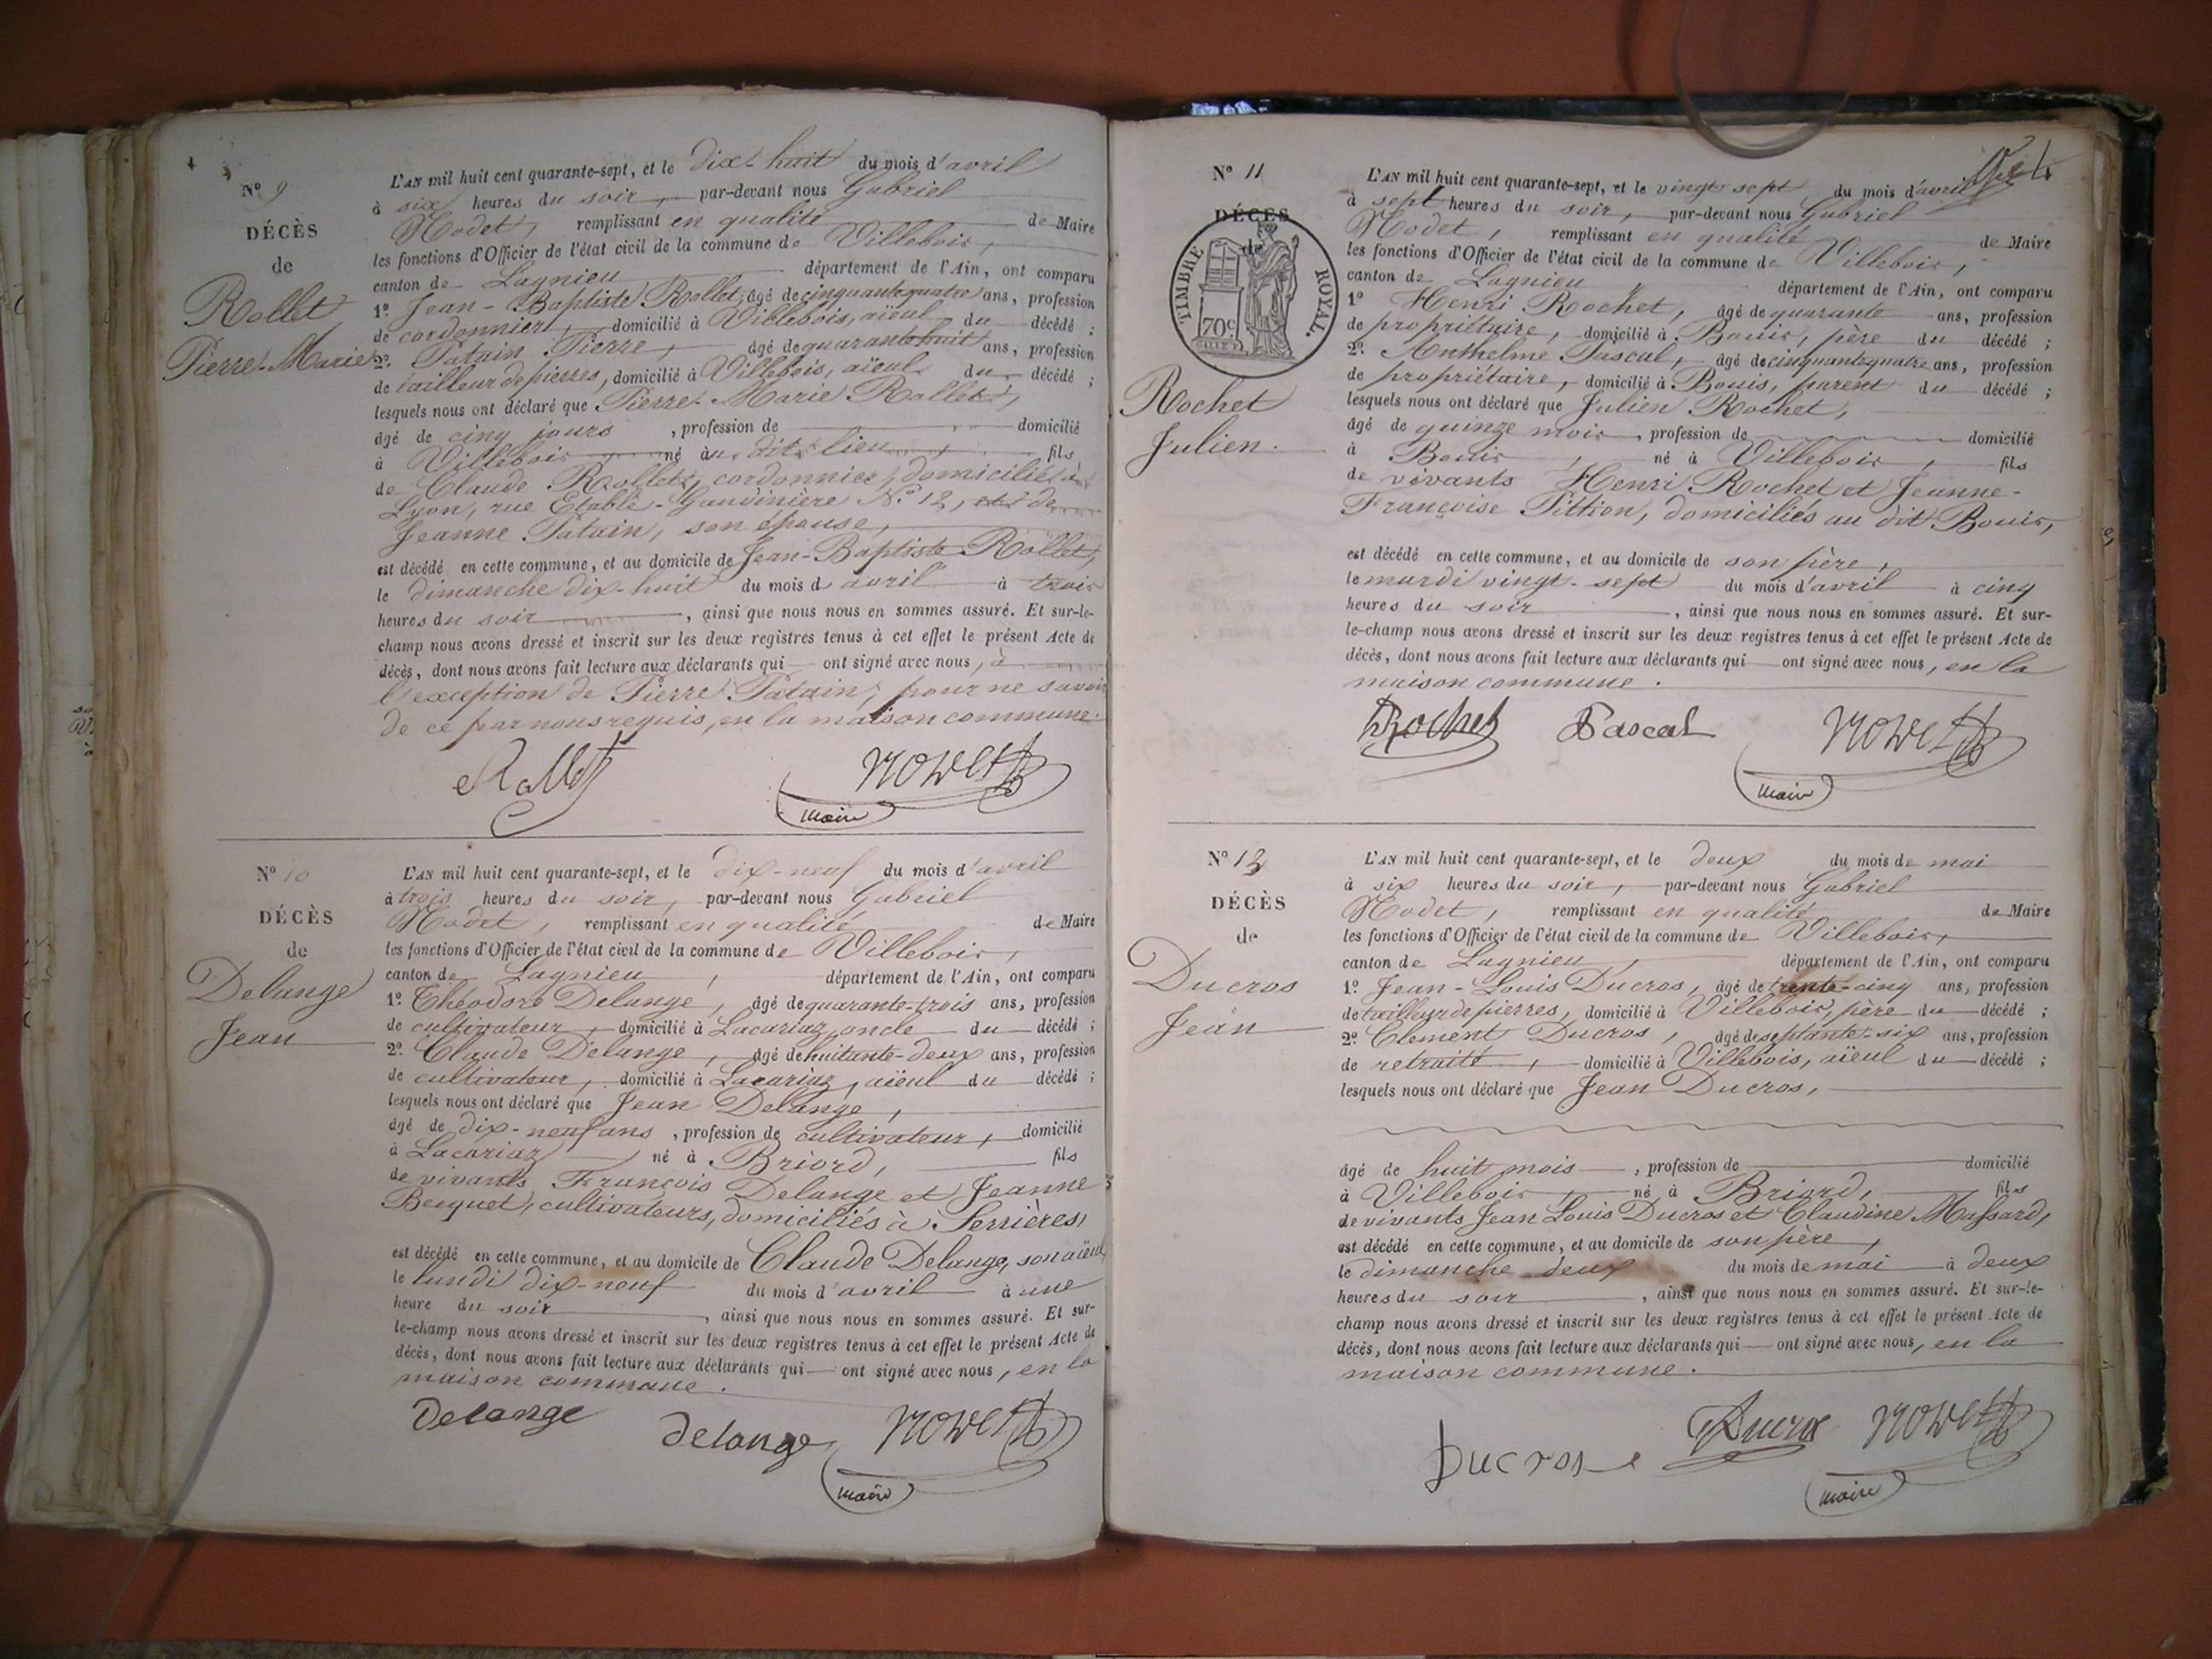 Nº 9
DÉCÈS
de
Rollet
Pierre-Marie
L'AN mil huit cent quarante-sept, et le dix-huit du mois d'avril
à six heures du soir, par-devant nous Gabriel
Nodet, remplissant en qualité de Maire
les fonctions d'Officier de l'état civil de la commune de Villebois,
canton de Lagnieu département de l'Ain, ont comparu
1º Jean-Baptiste Rollet, âgé de cinquante quatre ans, profession
de cordonnier, domicilié à Villebois, aïeul du décédé ;
2º Patain Pierre, âgé de quarante huit ans, profession
de tailleur de pierres, domicilié à Villebois, aïeul du décédé ;
lesquels nous ont déclaré que Pierre-Marie Rollet,
âgé de cinq jours , profession de domicilié
à Villebois né au dit lieu fils
de Claude Rollet, cordonnier, domicilié à
Lyon, rue Gaudinière Nº 12, et de
Jeanne Patain, son épouse,
est décédé en cette commune, et au domicile de Jean-Baptiste Rollet,
le dimanche dix-huit du mois d'avril à trois
heures du soir , ainsi que nous nous en sommes assuré. Et sur-le-
champ nous avons dressé et inscrit sur les deux registres tenus à cet effet le présent Acte de
décès, dont nous avons fait lecture aux déclarants qui ont signé avec nous, à
l'exception de Pierre Patain, pour ne savoir
de ce par nous requis, en la maison commune.
Rollet Nodet
maire
Nº 10
DÉCÈS
de
Delange
Jean
L'AN mil huit cent quarante-sept, et le dix-neuf du mois d'avril
à trois heures du soir, par-devant nous Gabriel
Nodet, remplissant en qualité de Maire
les fonctions d'Officier de l'état civil de la commune de Villebois,
canton de Lagnieu, département de l'Ain, ont comparu
1º Théodore Delange, âgé de quarante-trois ans, profession
de cultivateur, domicilié à Lacariaz, oncle du décédé ;
2º Claude Delange, âgé de huitante-deux ans, profession
de cultivateur, domicilié à Lacariaz, aïeul du décédé ;
lesquels nous ont déclaré que Jean Delange,
âgé de dix-neuf ans , profession de cultivateur, domicilié
à Lacariaz né à Briord, fils
de vivants François Delange et Jeanne
Becquet, cultivateurs, domiciliés à Serrières,
est décédé en cette commune, et au domicile de Claude Delange, son aïeul,
le lundi dix-neuf du mois d'avril à une
heure du soir , ainsi que nous nous en sommes assuré. Et sur-
le-champ nous avons dressé et inscrit sur les deux registres tenus à cet effet le présent Acte de
décès, dont nous avons fait lecture aux déclarants qui ont signé avec nous, en la
maison commune.
Delange delange Nodet
maire
Nº 11
DÉCÈS
de
TIMBRE ROYAL.
70c
Rochet
Julien.
L'AN mil huit cent quarante-sept, et le vingt sept du mois d'avril
à sept heures du soir, par-devant nous Gabriel
Nodet, remplissant en qualité de Maire
les fonctions d'Officier de l'état civil de la commune de Villebois,
canton de Lagnieu département de l'Ain, ont comparu
1º Henri Rochet, âgé de quarante ans, profession
de propriétaire, domicilié à Bouis, père du décédé ;
2º Anthelme Pascal, âgé de cinquante quatre ans, profession
de propriétaire, domicilié à Bouis, parent du décédé ;
lesquels nous ont déclaré que Julien Rochet,
âgé de quinze mois, profession de domicilié
à Bouis, né à Villebois, fils
de vivants Henri Rochet et Jeanne-
Françoise Pittion, domiciliés au dit Bouis,
est décédé en cette commune, et au domicile de son père,
le mardi vingt-sept du mois d'avril à cinq
heures du soir , ainsi que nous nous en sommes assuré. Et sur-
le-champ nous avons dressé et inscrit sur les deux registres tenus à cet effet le présent Acte de
décès, dont nous avons fait lecture aux déclarants qui ont signé avec nous, en la
maison commune.
Rochet Pascal Nodet
maire
Nº 12
DÉCÈS
de
Ducros
Jean
L'AN mil huit cent quarante-sept, et le deux du mois de mai
à six heures du soir, par-devant nous Gabriel
Nodet, remplissant en qualité de Maire
les fonctions d'Officier de l'état civil de la commune de Villebois,
canton de Lagnieu, département de l'Ain, ont comparu
1º Jean-Louis Ducros, âgé de trente-cinq ans, profession
de tailleur de pierres, domicilié à Villebois, père du décédé ;
2º Clement Ducros, âgé de septante-six ans, profession
de retraité, domicilié à Villebois, aïeul du décédé ;
lesquels nous ont déclaré que Jean Ducros,
âgé de huit mois , profession de domicilié
à Villebois, né à Briord, fils
de vivants Jean Louis Ducros et Claudine Massard,
est décédé en cette commune, et au domicile de son père,
le dimanche deux du mois de mai à deux
heures du soir , ainsi que nous nous en sommes assuré. Et sur-le-
champ nous avons dressé et inscrit sur les deux registres tenus à cet effet le présent Acte de
décès, dont nous avons fait lecture aux déclarants qui ont signé avec nous, en la
maison commune.
Ducros Ducros Nodet
maire